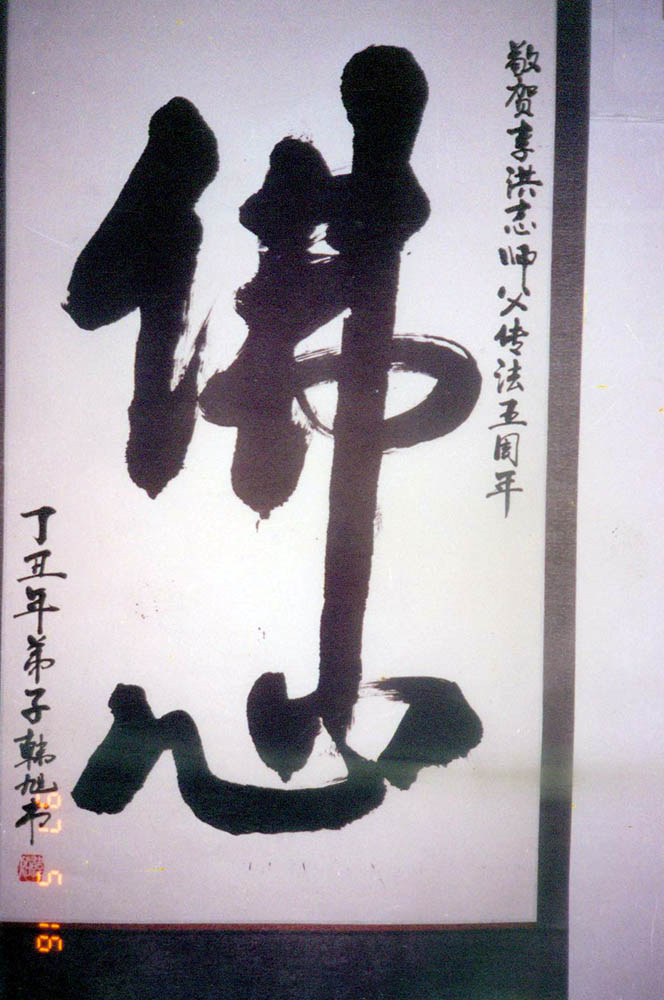 敬贺李洪志师父传法五周年
佛心
丁丑年弟子韩旭书
97 5 16